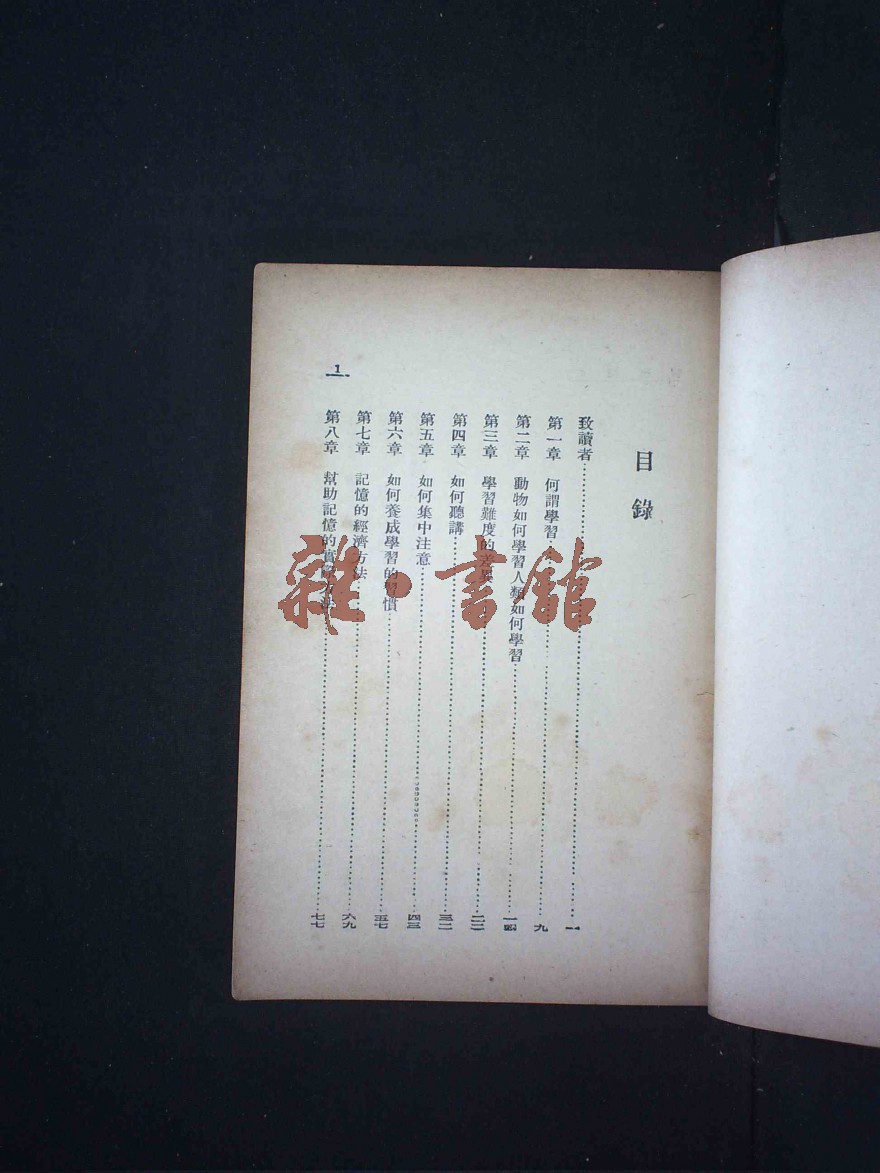 目錄
致讀者⋯⋯一
第一章 何謂學習⋯⋯九
第二章 動物如何學習人類如何學習⋯⋯一四
第三章 學習難度的差異⋯⋯二二
第四章 如何聽講⋯⋯三二
第五章 如何集中注意⋯⋯四三
第六章 如何養成學習的習慣⋯⋯五七
第七章 記憶的經濟方法⋯⋯六九
第八章 幫助記憶的實際方法⋯⋯七七
1
雜·書館